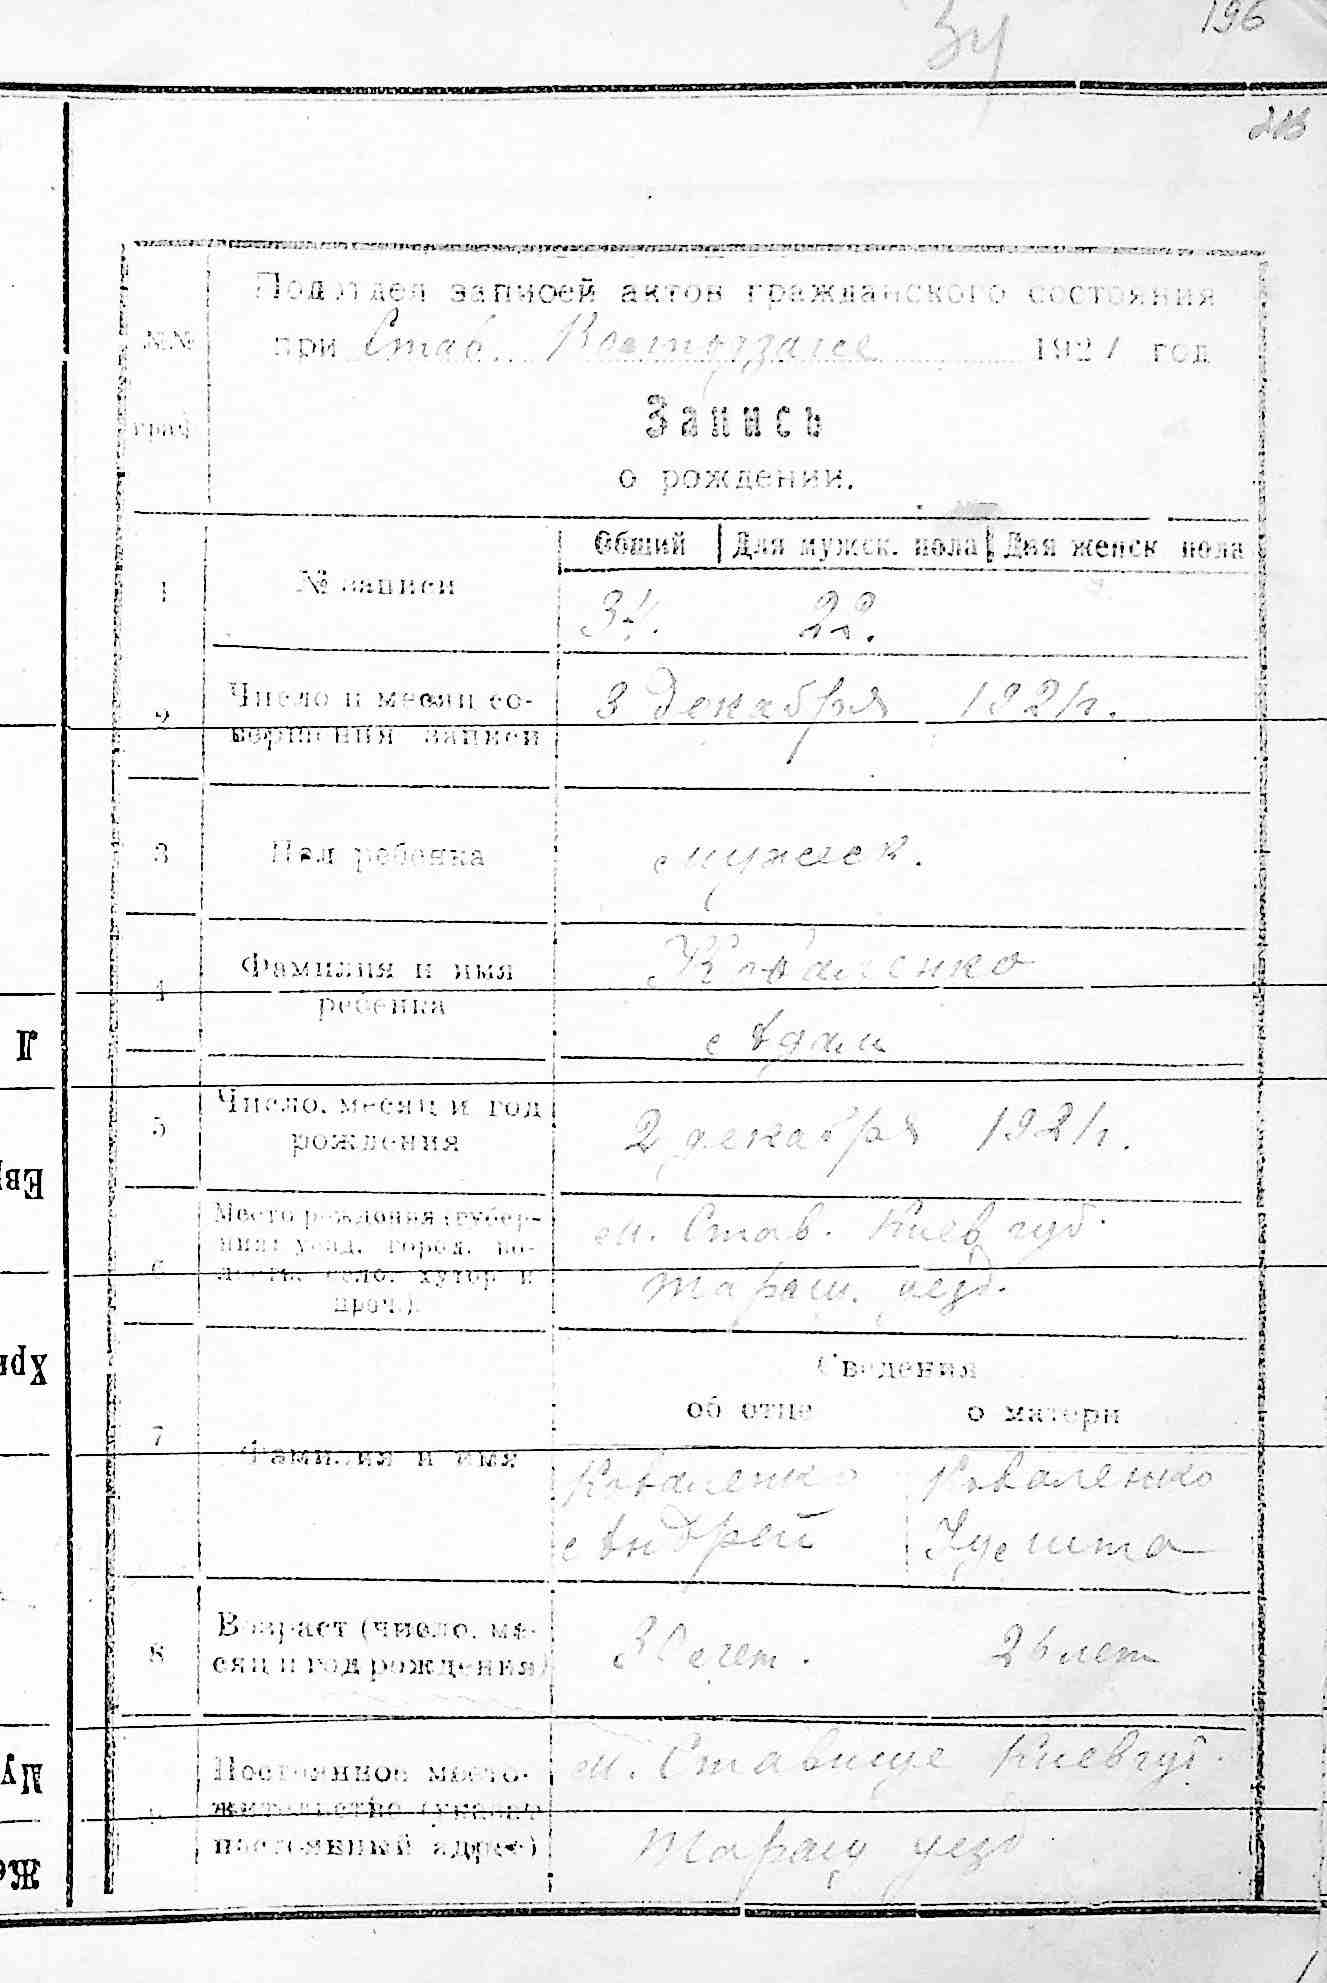 34
196
Подотдел записей актов гражданского состояния
при Став. 1921 год
№№
граф
Запись
о рождении.
Общий Для мужск. пола Для женск пола
1 № записи
34. 22.
2 Число и месяц со-
вершения записи
3 декабря 1921 г.
3 Пол ребенка
мужеск.
4 Фамилия и имя
ребенка
Коваленко
Адам
5 Число, месяц и год
рождения
2 декабря 1921 г.
6 Место рождения (губер-
ния, уезд, город, во-
лость, село, хутор и
проч.).
м. Став. Киев губ.
Таращ. уезд.
Сведения
об отце о матери
7 Фамилия и имя
Коваленко Коваленко
Андрей
8 Возраст (число, ме-
сяц и год рождения)
30 лет. 26 лет
Постоянное место-
жительство (указать
постоянный адрес)
м. Ставище Киев губ.
Таращ уезд
Л
Ев
Хри
Му
Же